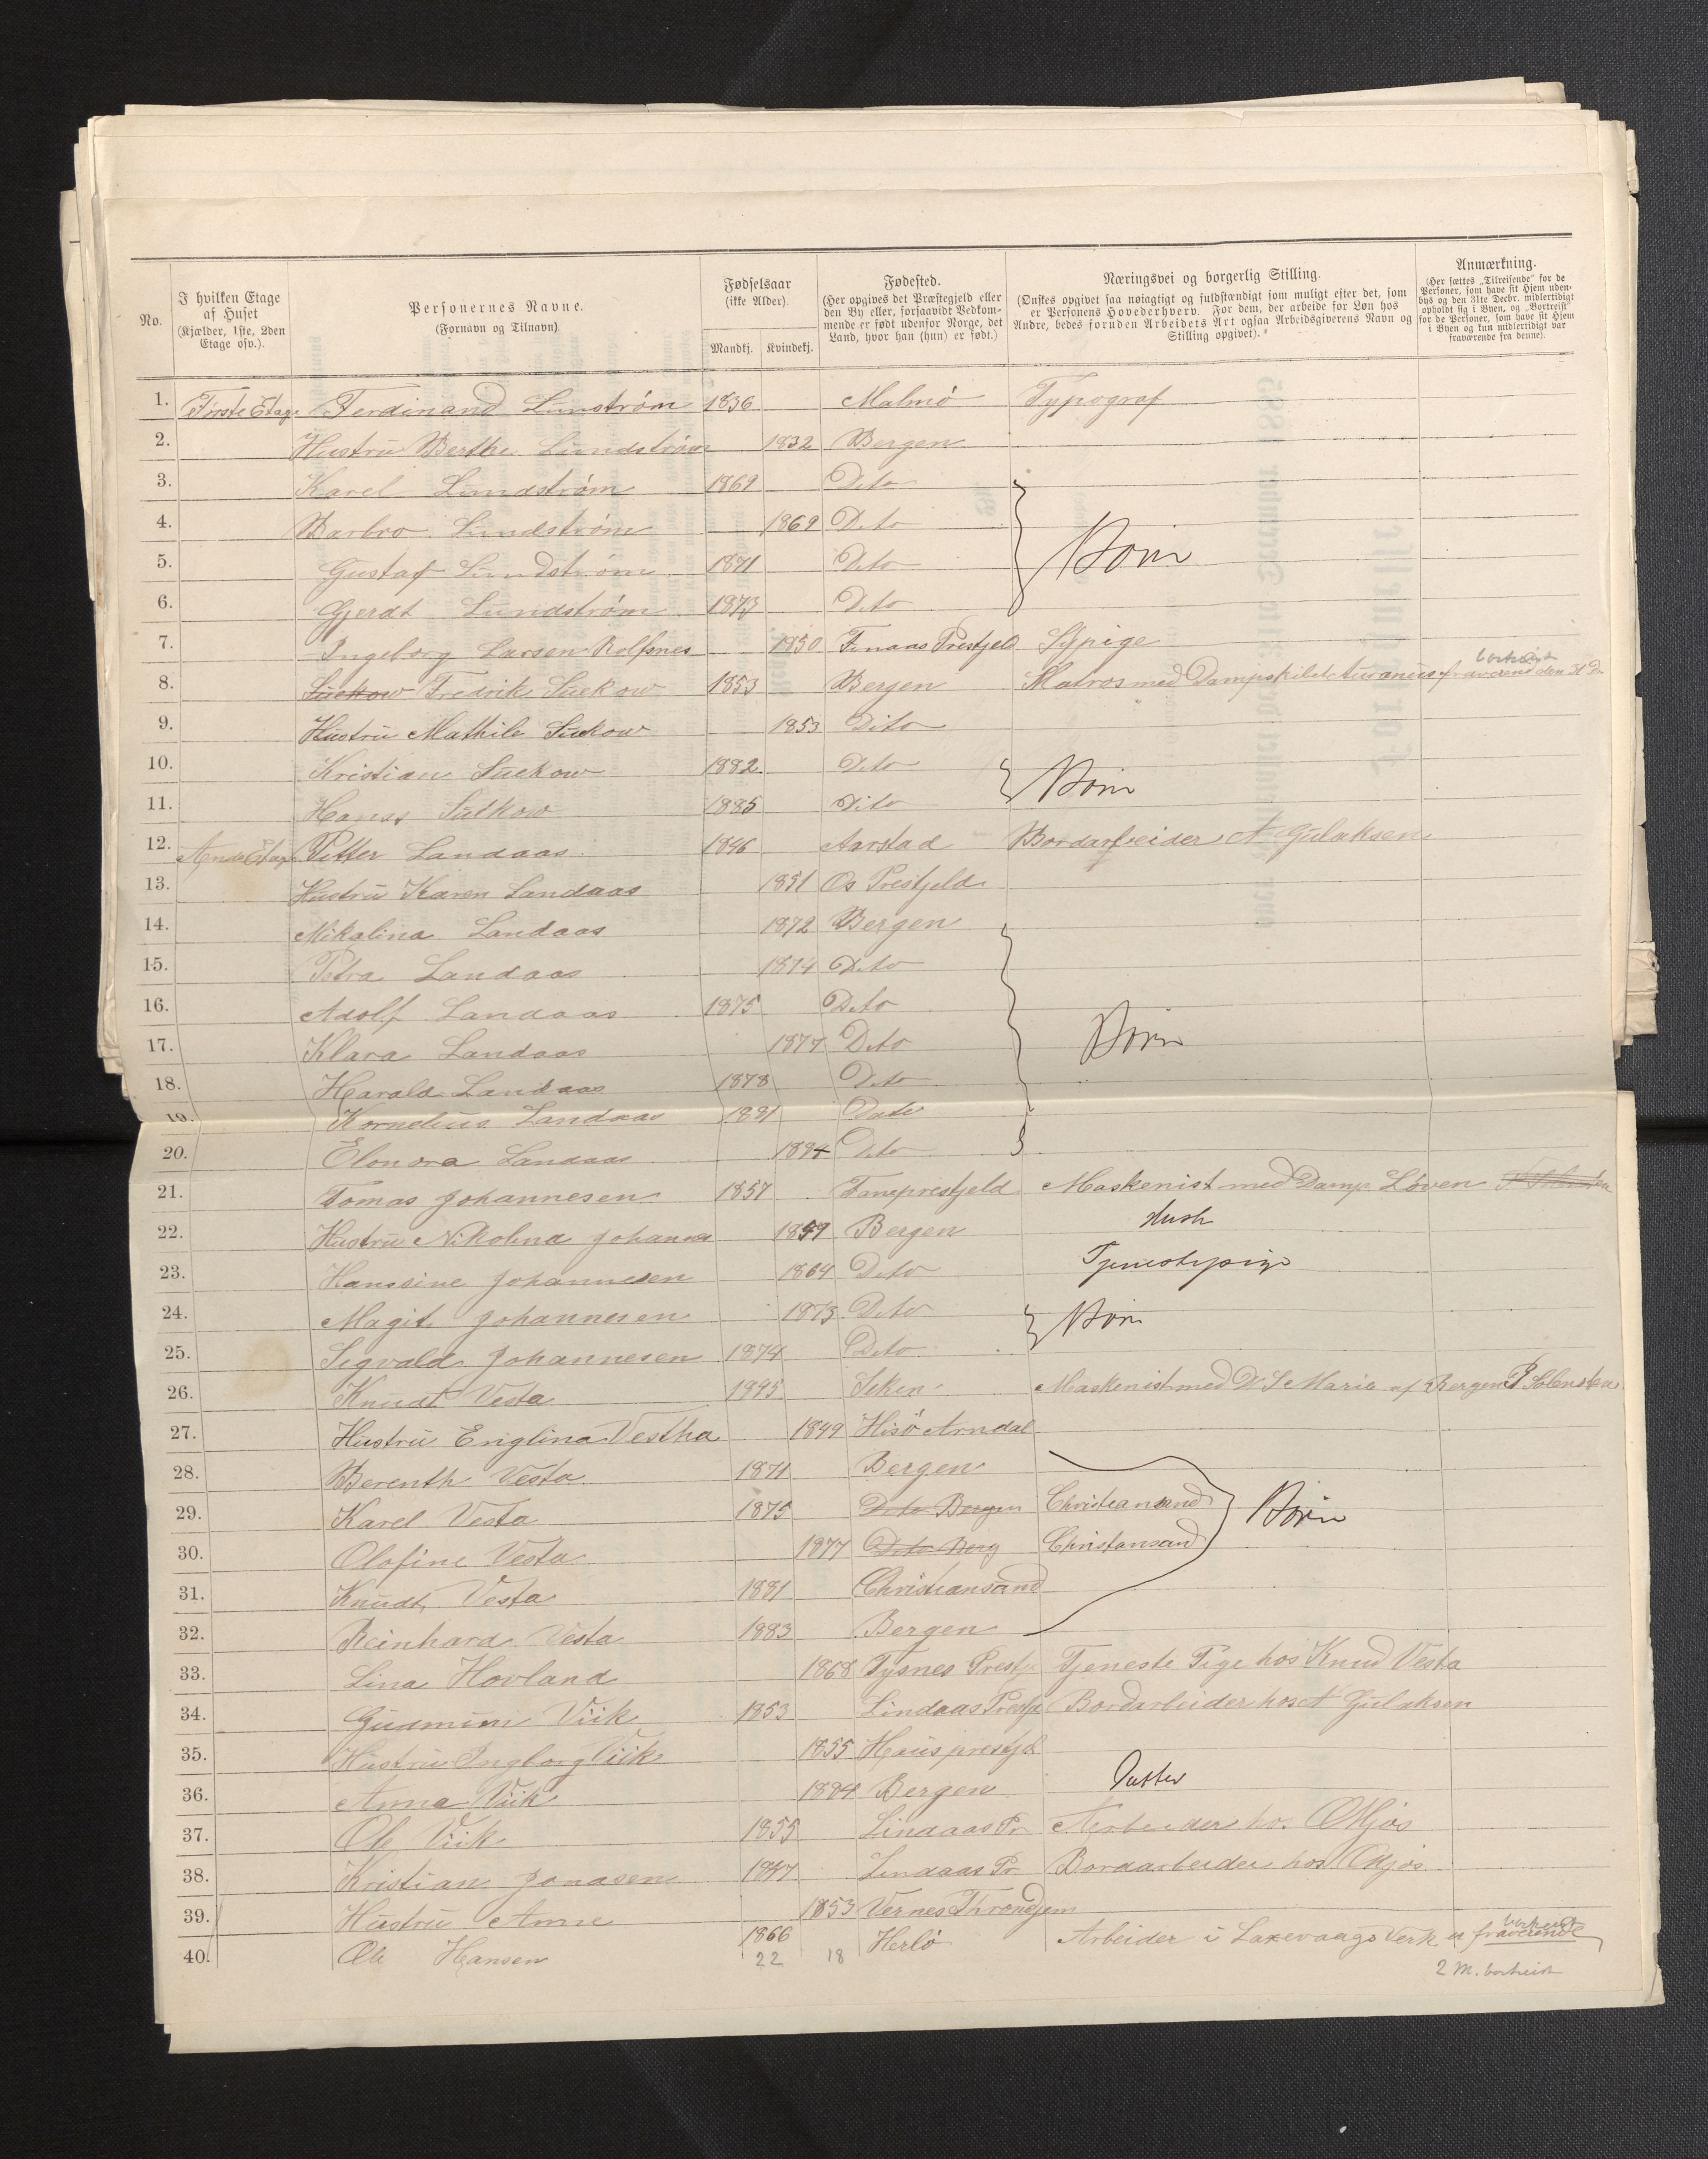 No.
I hvilken Etage af Huset (Kjælder, 1ste, 2den Etage osv.).
Personernes Navne. (Fornavn og Tilnavn).
Fødselsaar (ikke Alder). Mandkj. Kvindekj.
Fødested. (Her opgives det Præstegjeld eller den By eller, forsaavidt Vedkommende er født udenfor Norge, det Land, hvor han (hun) er født.)
Næringsvei og borgerlig Stilling. (Ønskes opgivet saa nøiagtigt og fuldstændigt som muligt efter det, som er Personens Hovederhverv. For dem, der arbeide for Løn hos Andre, bedes foruden Arbeidets Art ogsaa Arbeidsgiverens Navn og Stilling opgivet).
Anmærkning. (Her sættes „Tilreisende" for de Personer, som have sit Hjem udenbys og den 31te Decbr. midlertidigt opholdt sig i Byen, og „Bortreist" for de Personer, som have sit Hjem i Byen og kun midlertidigt var fraværende fra denne).
1. Første Etage Ferdinand Lunstrøm 1836 Malmø Typograf
2. Hustru Berthe Lundstrøm 1832 Bergen
3. Karel Lundstrøm 1869 Dito
4. Barbro Lundstrøm 1869 Dito
5. Gustaf Lundstrøm 1871 Dito Børn
6. Gjerdt Lundstrøm 1873 Dito
7. Ingeborg Larsen Rolfsnes 1850 Finaas Prestjeld Sypige
8. Suckow Fredrik Suckow 1853 Bergen Matros med Dampskibet fraverend bortreist
9. Hustru Mathile Suckow 1853 Dito
10. Kristian Suckow 1882 Dito Børn
11. Hanss Sutkow 1885 Dito
12. Anden Etage Petter Landaas 1846 Aarstad Bordarbeider A Gulaksen
13. Hustru Karen Landaas 1851 Os Prestjeld
14. Mikalina Landaas 1872 Bergen
15. Petra Landaas 1874 Dito
16. Adolf Landaas 1875 Dito
17. Klara Landaas 1877 Dito Børn
18. Harald Landaas 1878 Dito
19. Kornelius Landaas 1881 Dito
20. Elonora Landaas 1884 Dito
21. Tomas Johannesen 1857 Faneprestjeld Maskenist med Damp Løven
22. Hustru Nikolina Johannes 1849 Bergen Hush
23. Hanssine Johannesen 1864 Dito Tjenestepige
24. Magit Johannesen 1873 Dito Børn
25. Sigvald Johannesen 1874 Dito
26. Knudt Vesta 1845 Maskenist med D S Maria af Bergen
27. Hustru Englina Vestha 1849 Hisø Arndal
28. Berenth Vesta 1871 Bergen
29. Karel Vesta 1875 Dito Bergen Christiansand Børn
30. Olafine Vesta 1877 Dito Berg Christansand
31. Knudt Vesta 1881 Christiansand
32. Reinhard Vesta 1883 Bergen
33. Lina Hovland 1868 Tysnes Prestj Tjeneste Pige hos Knud Vesta
34. Gudmun Viik 1853 Lindaas Prestje Bordarbeider hos A Gulaksen
35. Hustru Ingborg Viik 1855 Haus prestjd
36. Anna Viik 1884 Bergen Datter
37. Ole Viik 1855 Lindaas Pr Aerbeider ho. O Mjøs
38. Kristian Jonasen 1847 Lindaas Pr Bordarbeider hos O Mjøs
39. Hustru Anne 1853 Vernes Throndjem
40. Ole Hansen 1866 Herlø Arbeider i Laxevaags Verk er fraverende bortreist
22 18
2 M. bortreist